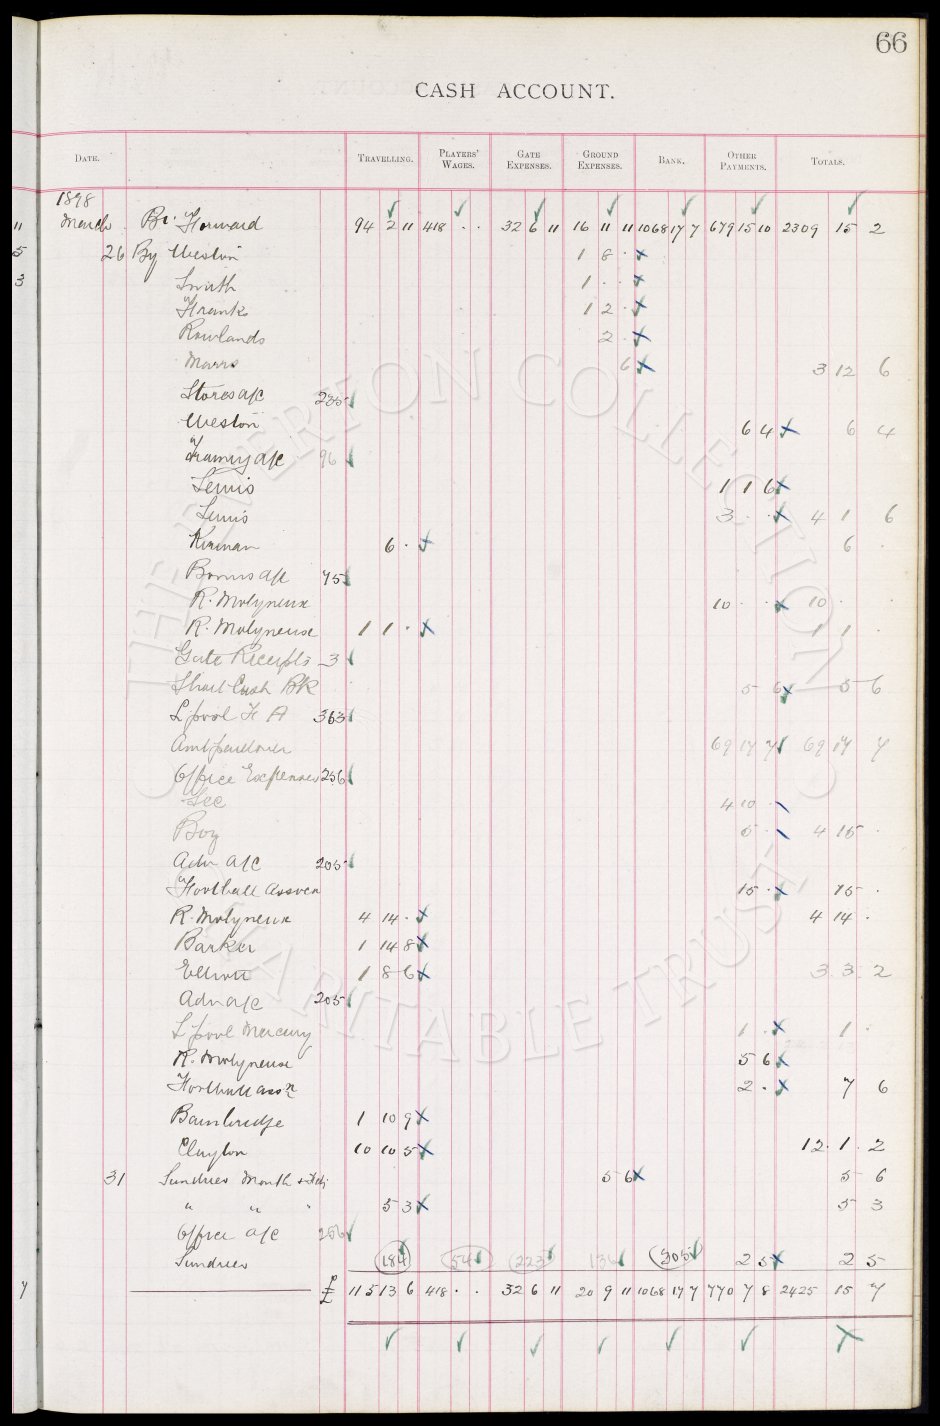 66
CASH ACCOUNT.
DATE. TRAVELLING. PLAYERS' WAGES. GATE EXPENSES. GROUND EXPENSES. BANK. OTHER PAYMENTS. TOTALS.
1898
11 March Bt. Forward 94 2 11 418 . . 32 6 11 16 11 11 1068 17 7 679 15 10 2309 15 2
5 26 By Weston 1 8 .
3 Smith 1 . .
Franks 1 2 .
Rowlands 2 .
Marrs 6 3 12 6
Stores a/c 235
Weston 6 4 6 4
96
Lewis 1 1 6
Lewis 3 . . 4 1 6
Kirwan 6 . 6 .
Bonus a/c 75
R. Molyneux 10 . . 10 . .
R. Molyneux 1 1 . 1 1 .
Gate Receipts 3
Short Cash Bk 5 6 5 6
L'pool F A 363
69 17 7 69 17 7
Office Expenses 256
Sec 4 10 .
Boy 5 . 4 15 .
Adv a/c 205
Football Assocn 15 . 15 .
R. Molyneux 4 14 . 4 14 .
Barker 1 14 8
Elliott 1 8 6 3 3 2
Adv a/c 205
L'pool Mercury 1 . 1 .
R. Molyneux 5 6
Football assn 2 . 7 6
Bainbridge 1 10 9
Clayton 10 10 5 12 . 1 . 2
31 Sundries Month 5 6 5 6
" " " 5 3 5 3
Office a/c 256
Sundries 184 54 223 134 305 2 5 2 5
7 £ 115 13 6 418 . . 32 6 11 20 9 11 1068 17 7 770 7 8 2425 15 7
THE EVERTON COLLECTION CHARITABLE TRUST